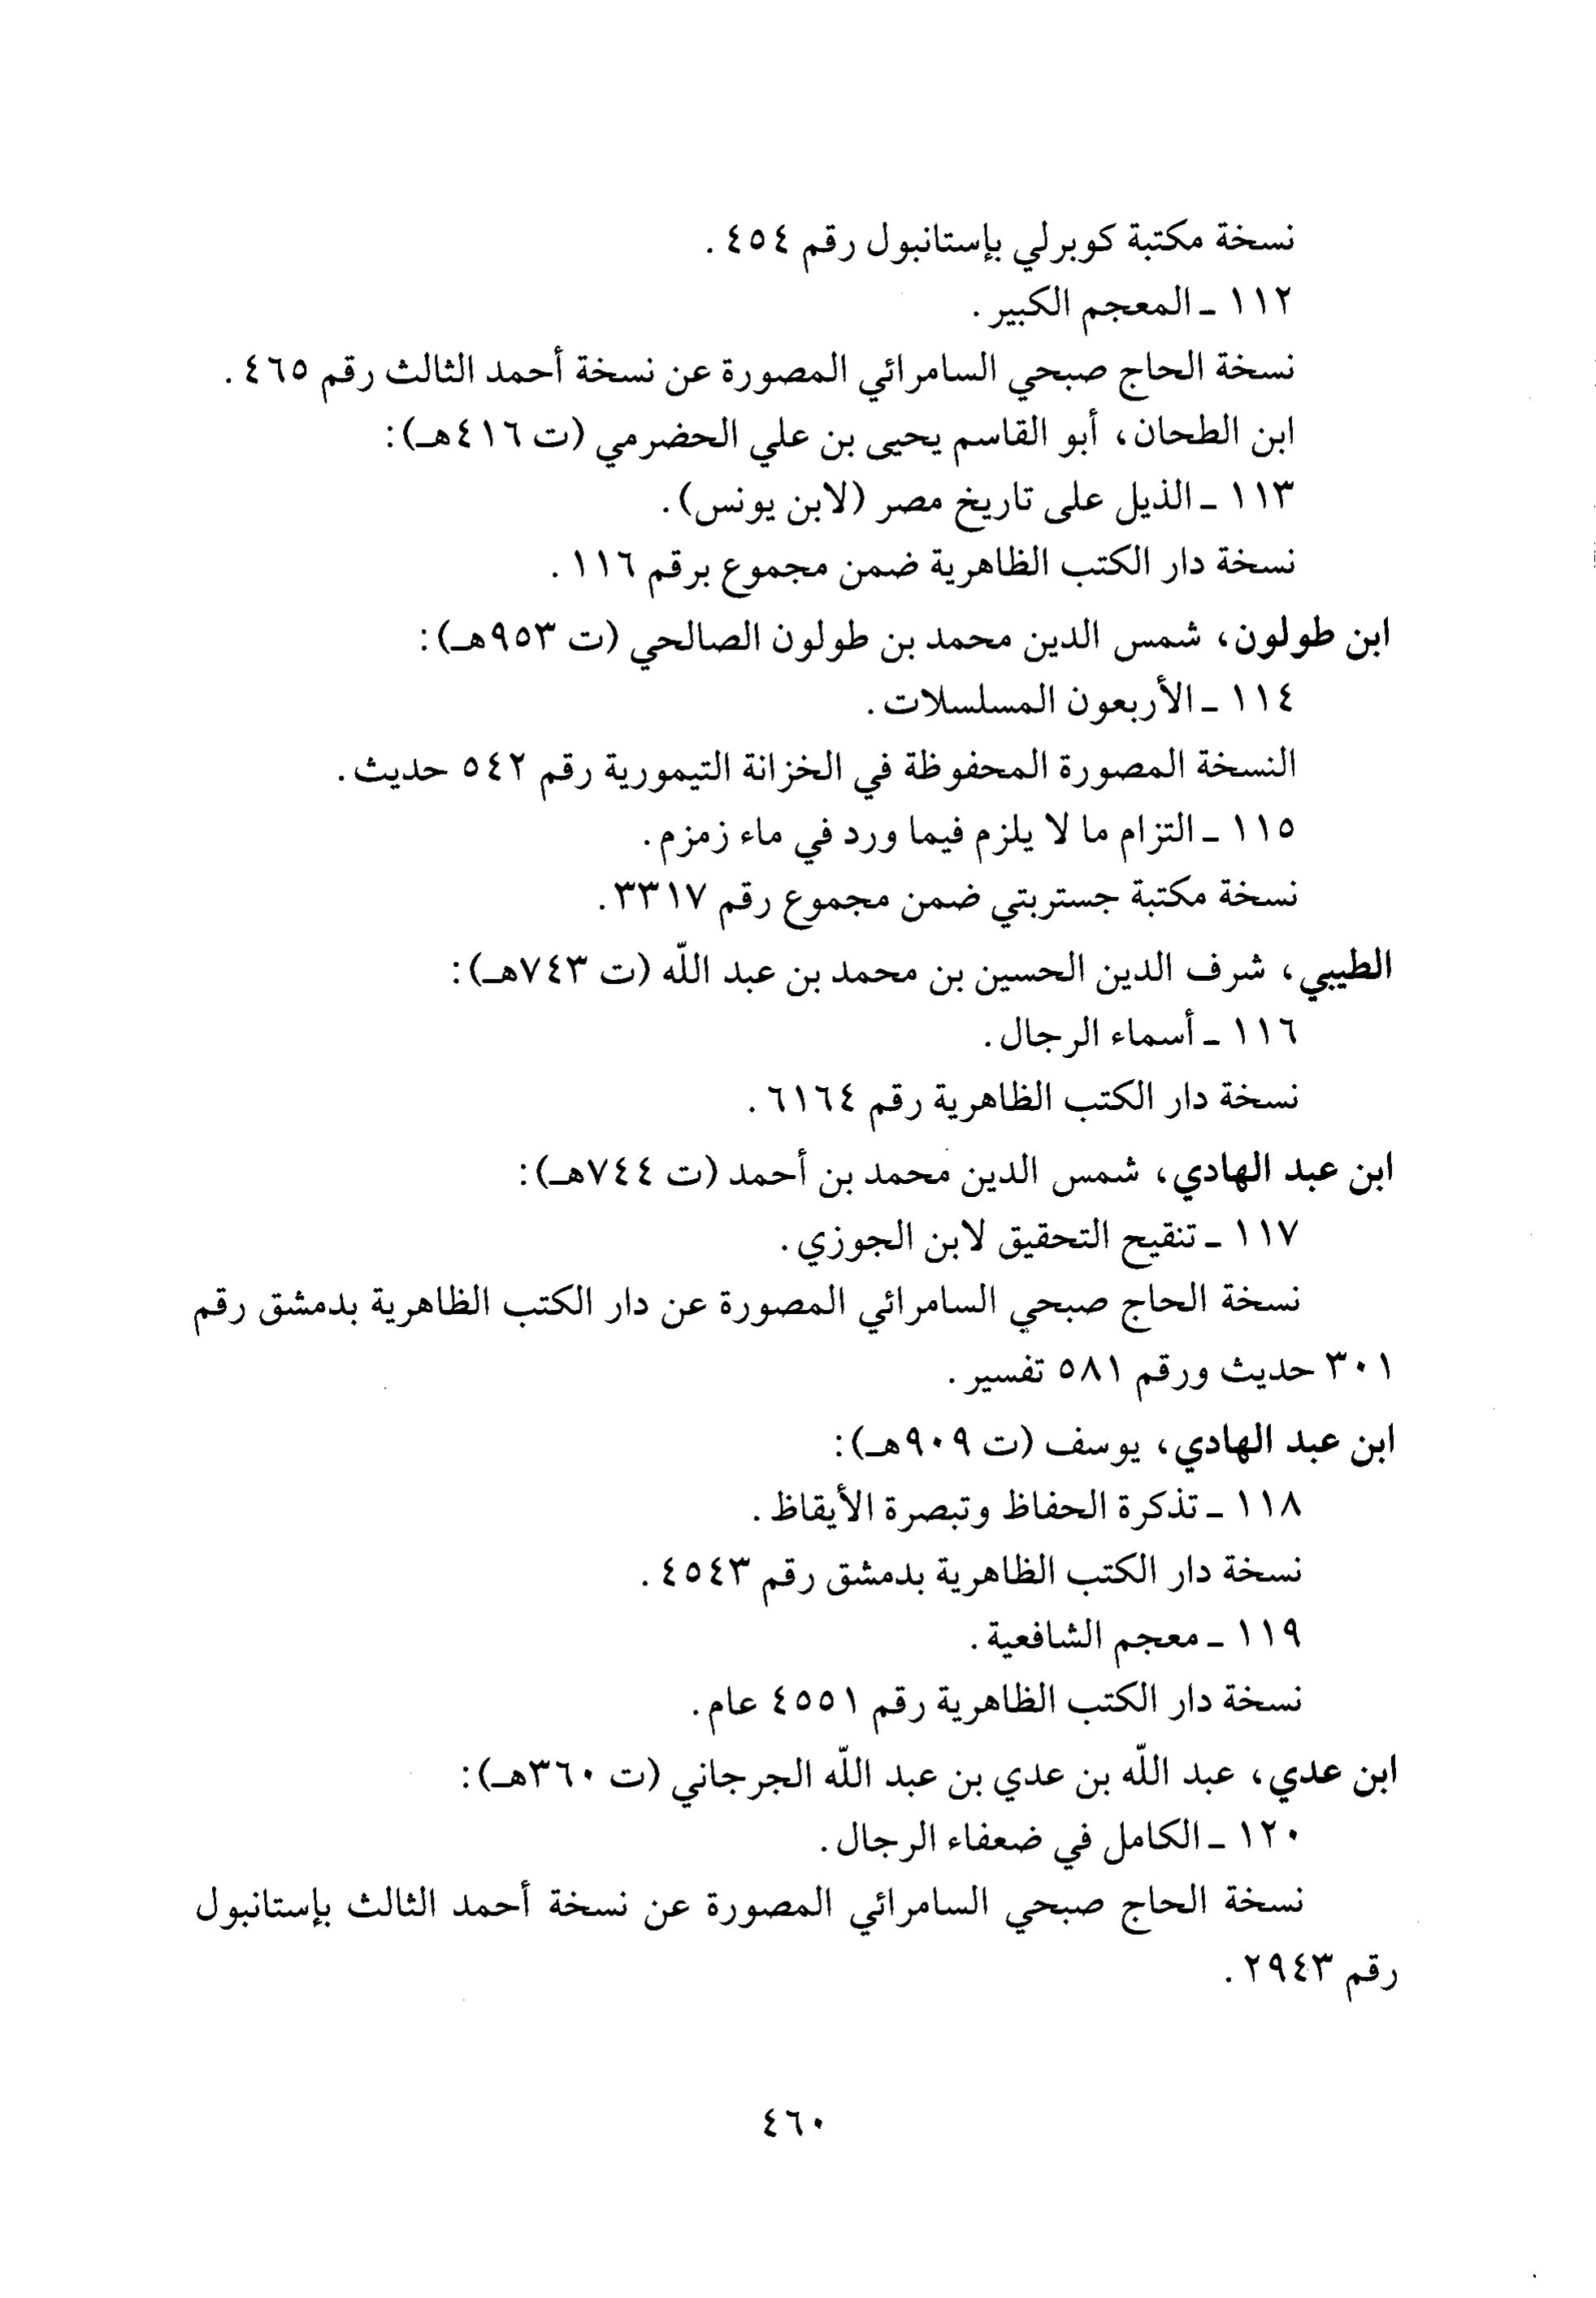 نسخة مكتبة كوبرلي بإستانبول رقم ٤٥٤ .
١١٢ ـ المعجم الكبير .
نسخة الحاج صبحي السامرائي المصورة عن نسخة أحمد الثالث رقم ٤٦٥ .
ابن الطحان، أبو القاسم يحيى بن علي الحضرمي (ت ٤١٦هـ):
١١٣ ـ الذيل على تاريخ مصر (لابن يونس).
نسخة دار الكتب الظاهرية ضمن مجموع برقم ١١٦ .
ابن طولون، شمس الدين محمد بن طولون الصالحي (ت ٩٥٣هـ):
١١٤ ـ الأربعون المسلسلات .
النسخة المصورة المحفوظة في الخزانة التيمورية رقم ٥٤٢ حديث .
١١٥ ـ التزام ما لا يلزم فيما ورد في ماء زمزم .
نسخة مكتبة جستربتي ضمن مجموع رقم ٣٣١٧ .
الطيبي، شرف الدين الحسين بن محمد بن عبد اللّه (ت ٧٤٣هـ):
١١٦ ـ أسماء الرجال .
نسخة دار الكتب الظاهرية رقم ٦١٦٤ .
ابن عبد الهادي، شمس الدين محمد بن أحمد (ت ٧٤٤هـ):
١١٧ ـ تنقيح التحقيق لابن الجوزي .
نسخة الحاج صبحي السامرائي المصورة عن دار الكتب الظاهرية بدمشق رقم
٣٠١ حديث ورقم ٥٨١ تفسير .
ابن عبد الهادي، يوسف (ت ٩٠٩هـ):
١١٨ ـ تذكرة الحفاظ وتبصرة الأيقاظ .
نسخة دار الكتب الظاهرية بدمشق رقم ٤٥٤٣ .
١١٩ ـ معجم الشافعية .
نسخة دار الكتب الظاهرية رقم ٤٥٥١ عام .
ابن عدي، عبد اللّه بن عدي بن عبد اللّه الجرجاني (ت ٣٦٠هـ):
١٢٠ ـ الكامل في ضعفاء الرجال .
نسخة الحاج صبحي السامرائي المصورة عن نسخة أحمد الثالث بإستانبول
رقم ٢٩٤٣ .
٤٦٠